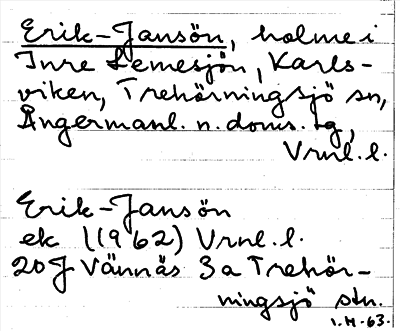 Erik-Jansön, holme i
Inre Lemesjön, Karls-
viken, Trehörningsjö sn,
Ångermanl. n. doms. tg,
Vrnl. l.
Erik-Jansön
ek l(1962) Vrnl. l.
20J Vännäs 3a Trehör-
ningsjö stn.
I.H. 63.